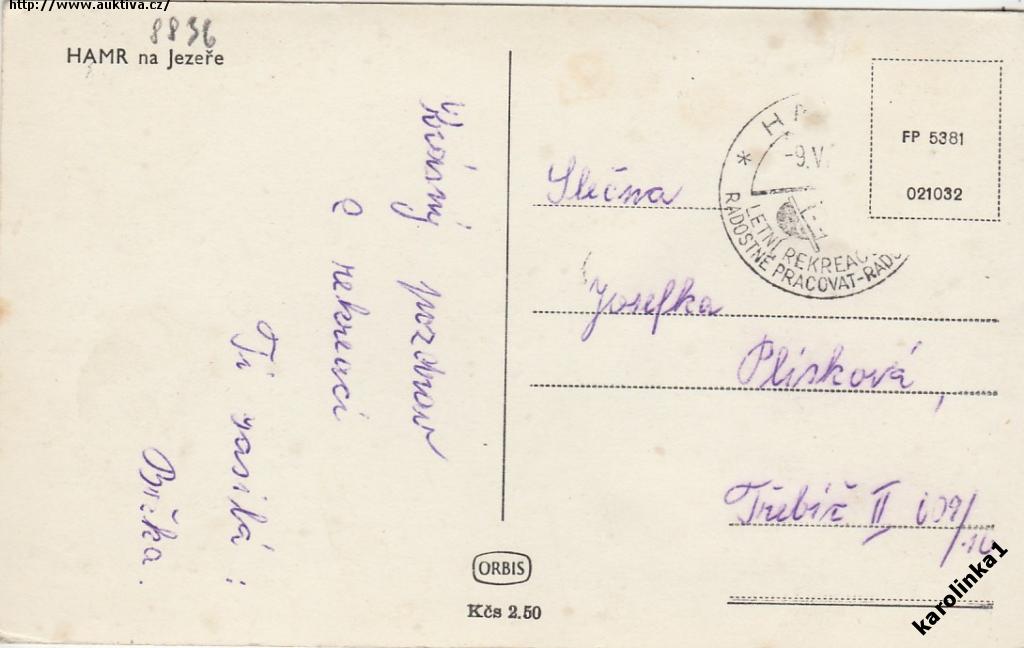 http://www.auktiva.cz/
8836
HAMR na Jezeře
Krásný pozdrav
z rekreaci
Ti zasílá:
Božka.
Slečna
Josefka
Plísková,
Třebíč II 609/
HA
-9.V
LETNÍ REKREAC
RADOSTNĚ PRACOVAT-RADO
FP 5381
021032
ORBIS
Kčs 2.50
karolinka1